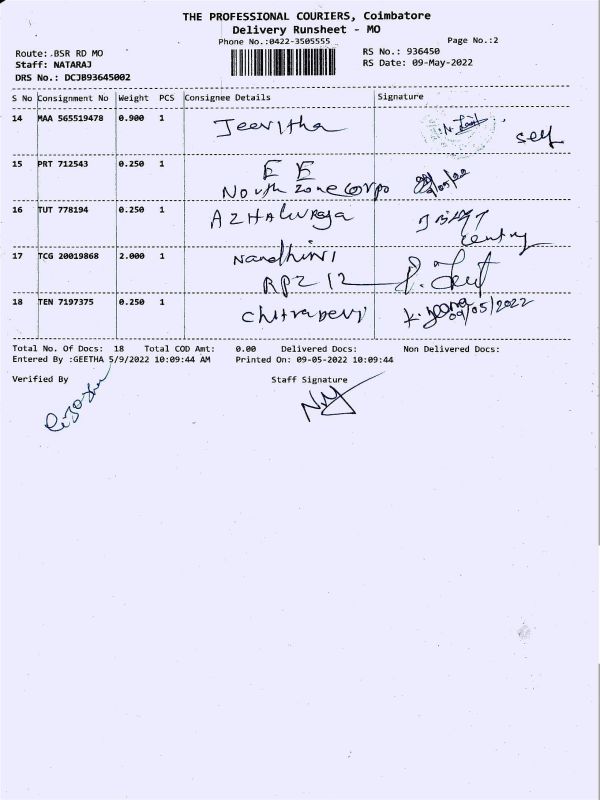 THE PROFESSIONAL COURIERS, Coimbatore
Delivery Runsheet - MO
Phone No.:0422-3505555
Page No.:2
Route: BSR RD MO
RS No.: 936450
Staff: NATARAJ
RS Date: 09-May-2022
DRS No.: DCJB93645002
S No Consignment No Weight PCS Consignee Details Signature
14 MAA 565519478 0.900 1 Jeevitha self
15 PRT 712543 0.250 1 E E
North Zone Corpo
16 TUT 778194 0.250 1
17 TCG 20019868 2.000 1 Nandhini
RPZ 12
18 TEN 7197375 0.250 1 Chitradevi 09/05/2022
Total No. Of Docs: 18 Total COD Amt: 0.00 Delivered Docs: Non Delivered Docs:
Entered By :GEETHA 5/9/2022 10:09:44 AM Printed On: 09-05-2022 10:09:44
Verified By Staff Signature